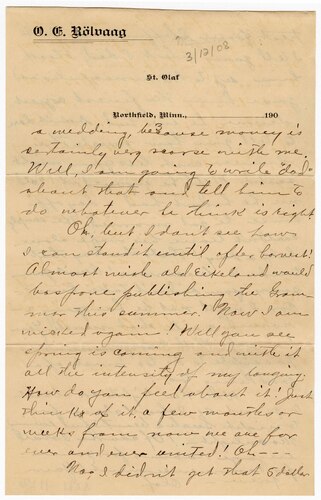 O. E. Rölvaag
3/12/08
St. Olaf
Northfield, Minn., 190
3
a wedding, because money is
certainly very scarse with me.
Well, I am going to write "dad"
about that and tell him to
do whatever he think is right.
Oh, but I don't see how
I can stand it until after harvest!
Almost wish old Eikeland would
pospone publishing the Gram-
mar this summer! Now I am
wicked again! Well you see
spring is coming and with it
all the intensity of my longing.
How do you feel about it! Just
thinks of it, a few months or
weeks from now we are for
ever and ever united! Oh ---
No, I didn't get that 5 dollar